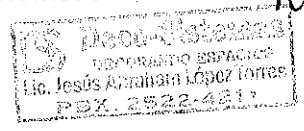 Deco-Sistemas
DECORANDO ESPACIOS
Lic. Jesús Abraham López Torres
PBX. 2522-4217